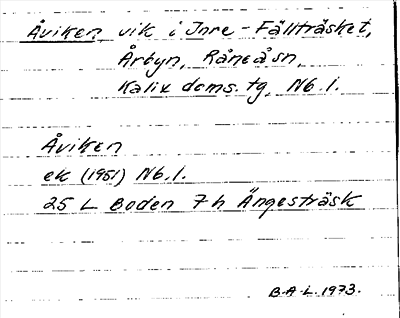 Åviken, vik i Inre-Fällträsket,
Årbyn, Råneå sn,
Kalix doms. tg, Nb.l.
Åviken
ek (1951) Nb.l.
25 L Boden 7h Ängesträsk
B.A.L. 1973.